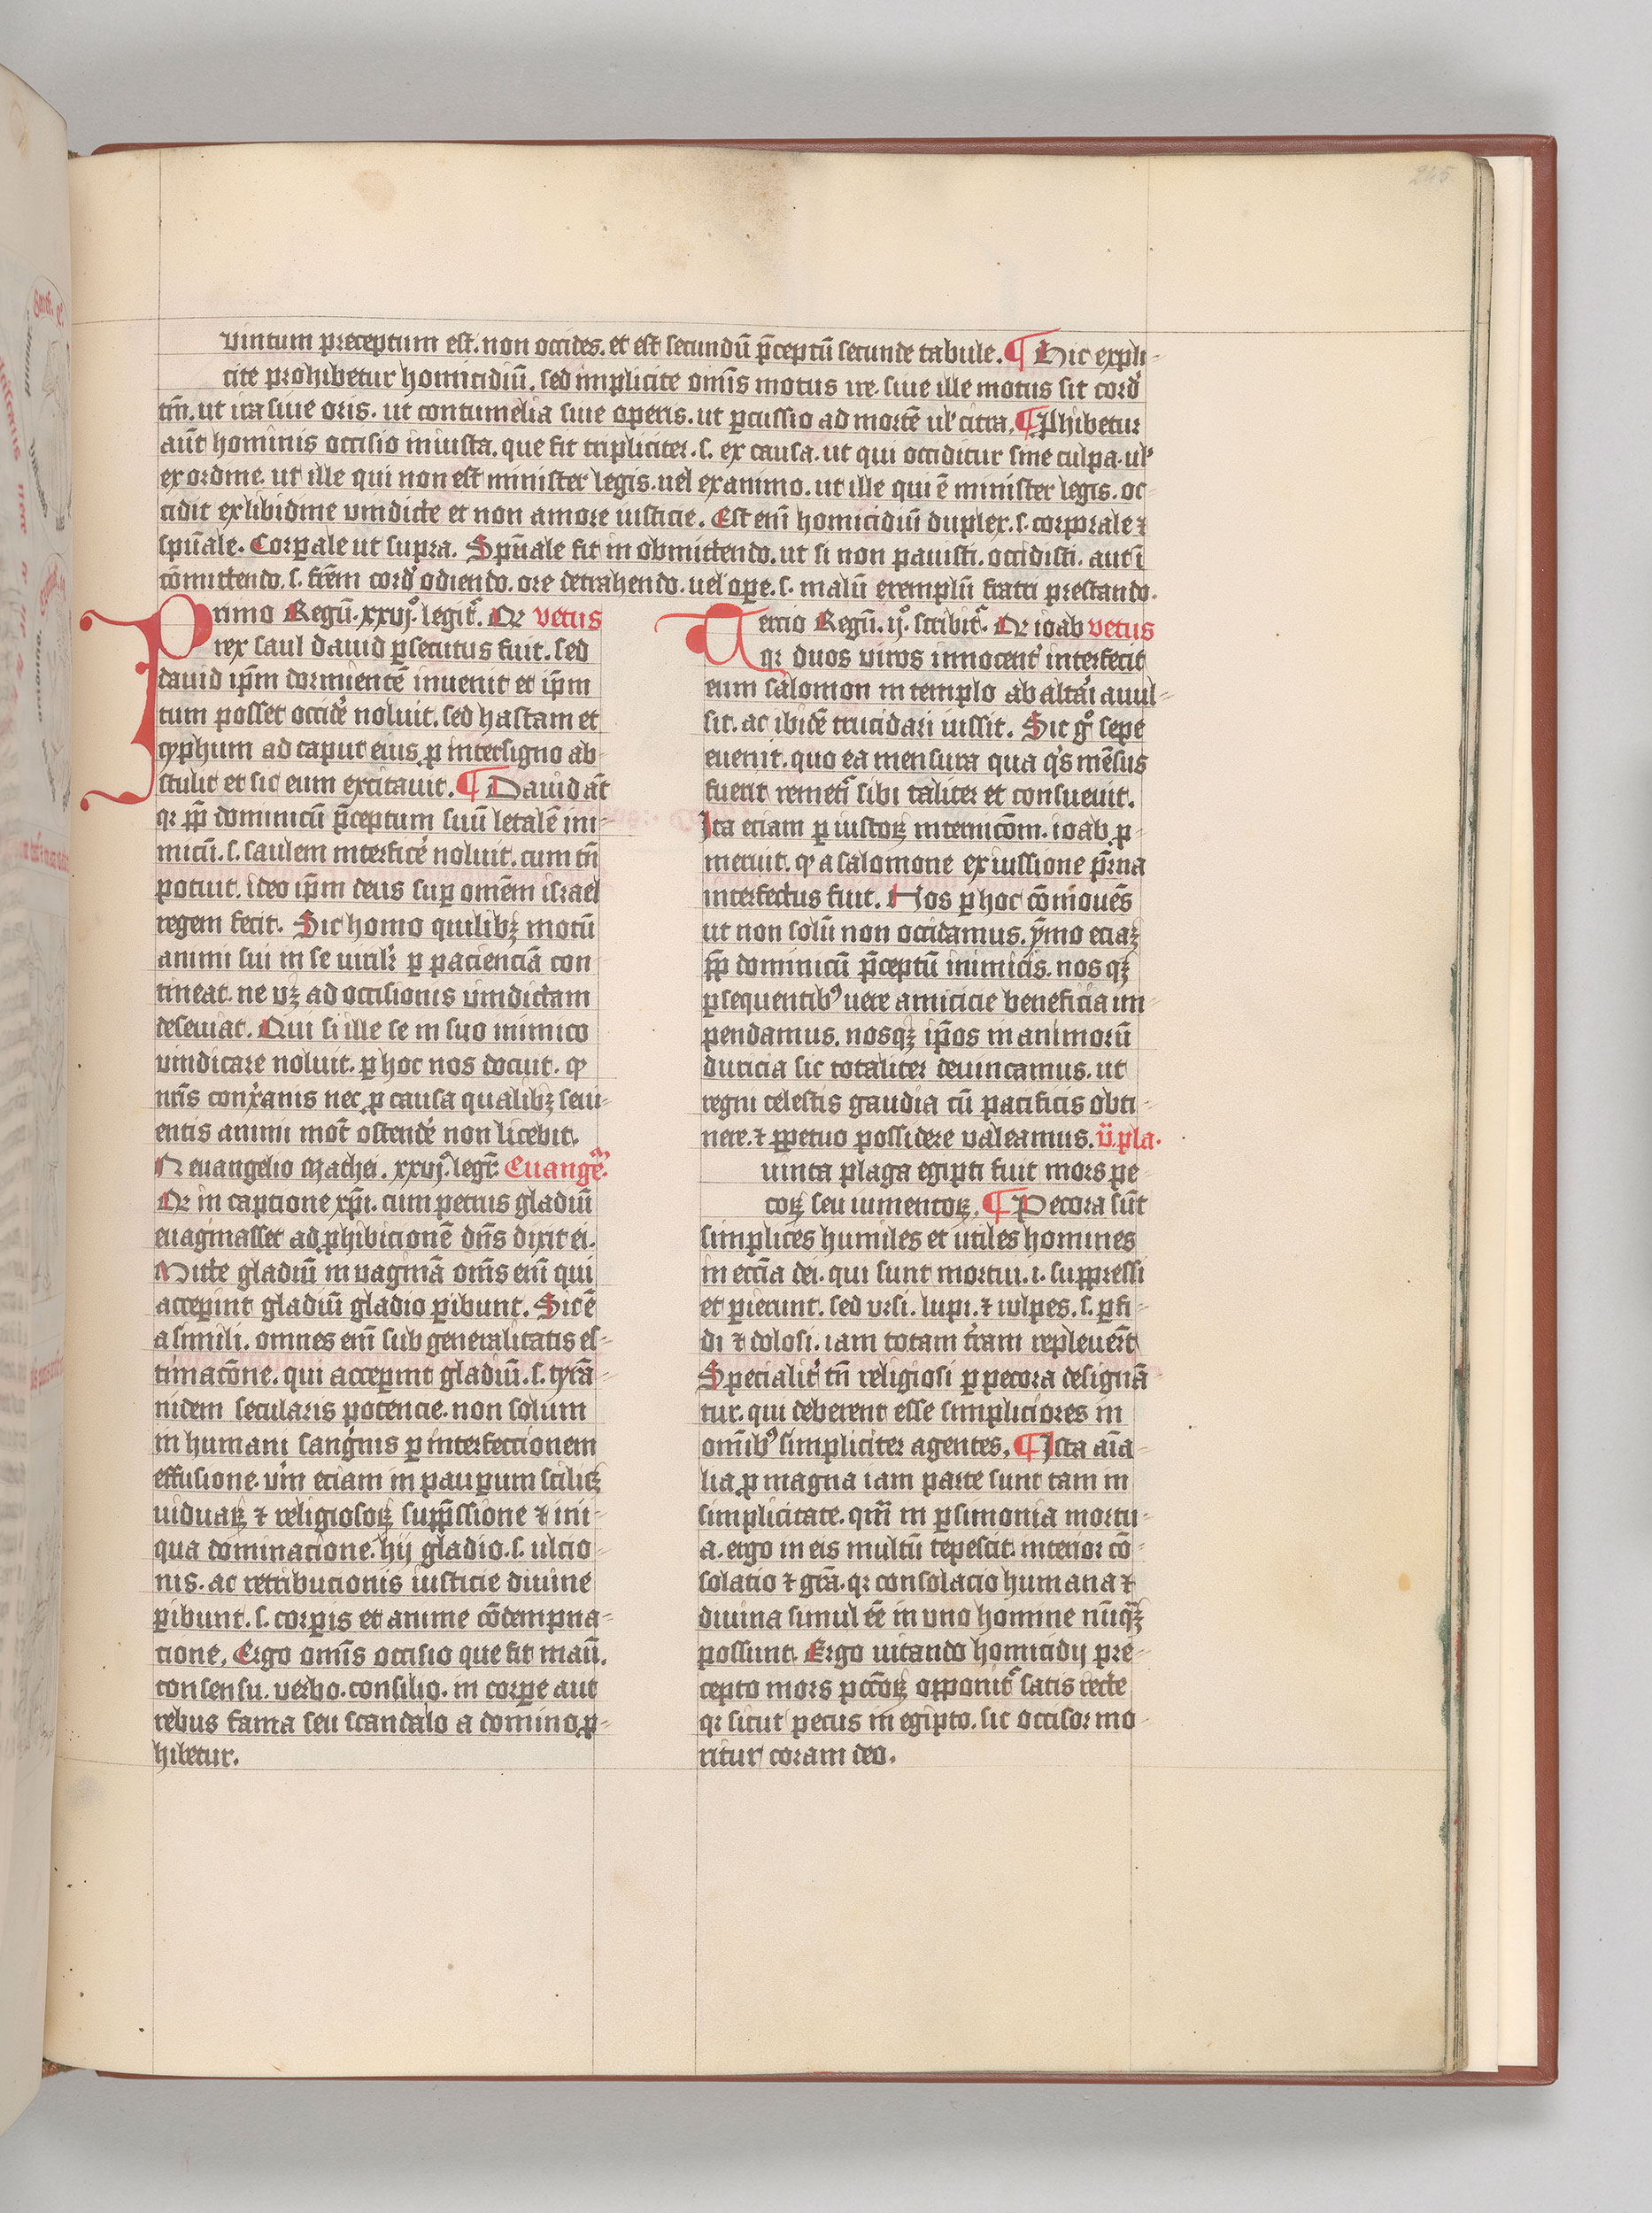 uintum preceptum est. non occides. et est secundū p̄ceptū secunde tabule. ¶ Hic expli-
cite prohibetur homicidiū. sed implicite om̄is motus ire. siue ille motus sit cord'
tm̄. ut ira siue oris. ut contumelia siue operis. ut ꝑcussio ad mortē ul' citra. ¶ Ꝓhibetur
aūt hominis occisio iniusta. que fit tripliciter. s. ex causa. ut qui occiditur sine culpa. ul'
ex ordine. ut ille qui non est minister legis. uel ex animo. ut ille qui ē minister legis. oc-
cidit ex libidine uindicte et non amore iusticie. Est em̄ homicidiū duplex. s. corporale ⁊
spūale. Corꝑale ut supra. Spūale fit in obmittendo. ut si non pauisti. occidisti. aut ī
cōmittendo. s. frēm cord' odiendo. ore detrahendo. uel oꝑe. s. malū exemplū fratri prestando.
Primo Regū. xxvj.º legit᷑. Qr vetus
rex saul dauid ꝑsecutus fuit. sed
dauid ip̄m dormientē inuenit et ip̄m
cum posset occid'e noluit. sed hastam et
cyphum ad caput eius ꝓ intersigno ab-
stulit et sic eum excitauit. ¶ Dauid aūt
qr ꝓp̄ dominicū p̄ceptum suū letalē ini-
micū. s. saulem interfic'e noluit. cum tn̄
potuit. ideo ip̄m deus suꝑ om̄em israel
regem fecit. Sic homo quilibꝫ motū
animi sui in se uirilit' ꝑ pacienciā con
tineat. ne vꝫ ad occisionis uindictam
deseuiat. Qui si ille se in suo inimico
vindicare noluit. ꝑ hoc nos docuit. ꝙ
nr̄is conx̄anis nec ꝓ causa qualibꝫ seui-
entis animi mot' ostend'e non licebit.
N euangelio Mathei. xxvj.º legr̄. Euange᷑.
Qr in captione xp̄i. cum petrus gladiū
euaginasset ad ꝓhibicionē dn̄s dixit ei.
Mitte gladiū in vaginā om̄s em̄ qui
acceꝑint gladiū gladio ꝑibunt. Sic ē
a simili. omnes em̄ sub generalitatis es-
timacōne. qui acceꝑint gladiū. s. tyrā-
nidem secularis potencie. non solum
in humani sang'nis ꝑ interfeccionem
effusione. v'm eciam in pauꝑum scilicꝫ
uiduaꝝ ⁊ religiosoꝝ supp̄ssione ⁊ ini-
qua dominacione. hij gladio. s. ulcio-
nis. ac retribucionis iusticie diuine
ꝑibunt. s. corꝑis et anime cōdempna-
cione. Ergo om̄is occisio que fit manū.
consensu. verbo. consilio. in corꝑe aut
rebus fama seu scandalo a domino ꝓ-
hibetur.
Tercio Regū. ij.º scribit᷑. Qr ioab vetus
qr duos viros innocent' interfecit
eum salomon in templo ab altari auul-
sit. ac ibidē trucidari iussit. Sic gº sepe
euenit. quo ea mensura qua q's mēsus
fuerit remeti᷑ sibi taliter et consueuit.
Ita eciam ꝑ iustoꝝ internicōm. ioab ꝓ-
meruit. ꝙ a salomone ex iussione pr̄na
interfectus fuit. Nos ꝑ hoc cōmouēs
ut non solū non occidamus. ymo eciaꝫ
ꝓp̄ dominicū p̄ceptū inimicis. nosqꝫ
ꝑsequentibꝰ uere amicicie beneficia im-
pendamus. nosqꝫ ip̄os in animorū
duricia sic totaliter deuincamus. ut
regni celestis gaudia cū pacificis obti-
nere. ⁊ ꝑpetuo possidere valeamus. v. pla.
uinta plaga egipti fuit mors pe-
coꝝ seu iumentoꝝ. ¶ Pecora sūt
simplices humiles et utiles homines
in ecc̄ia dei. qui sunt mortui. i. suppressi
et ꝑierunt. sed ursi. lupi. ⁊ uulpes. s. ꝑfi-
di ⁊ dolosi. iam totam t'ram repleuer̄t
Specialit' tn̄ religiosi ꝑ pecora designā
tur. qui deberent esse simpliciores in
om̄ibꝰ simpliciter agentes. ¶ Ista aīa-
lia ꝓ magna iam parte sunt tam in
simplicitate. qm̄ in ꝑsimonia mortu-
a. ergo in eis multū tepescit. interior cō-
solatio ⁊ gr̄a. qr consolacio humana ⁊
diuina simul ēe in uno homine nūqꝫ
possunt. Ergo uitando homicidij pre-
cepto mors pecc̄oꝝ opponit᷑ satis recte
qr sicut pecus in egipto. sic occisor mo-
ritur coram deo.
245